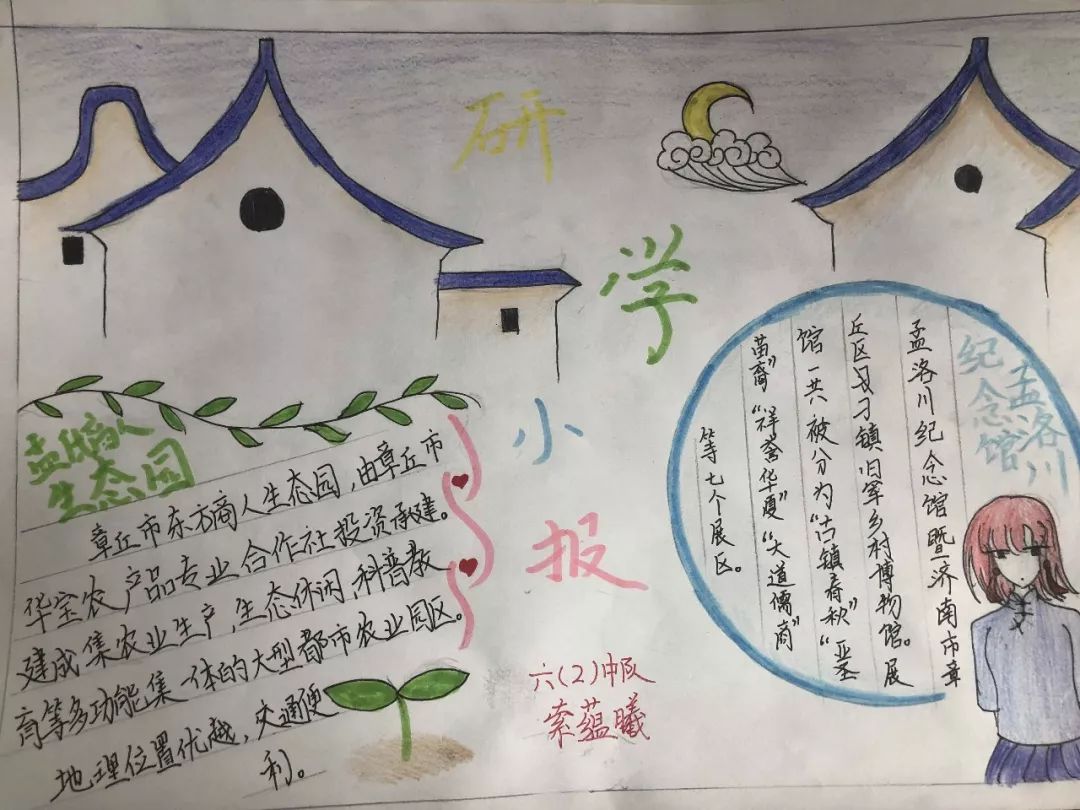 研学小报
商人
生态园
章丘市东方商人生态园,由章丘市
华宝农产品专业合作社投资承建。
建成集农业生产,生态休闲,科普教
高等多功能集一体的大型都市农业园区。
地理位置优越,交通便
利。
孟洛川
纪念馆
孟洛川纪念馆暨济南市章
丘区刁镇旧军乡村博物馆。展
馆一共被分为“古镇春秋”“亚圣
苗裔”“祥鸾华厦”“大道儒商”
等七个展区。
六(2)中队
索蕴曦